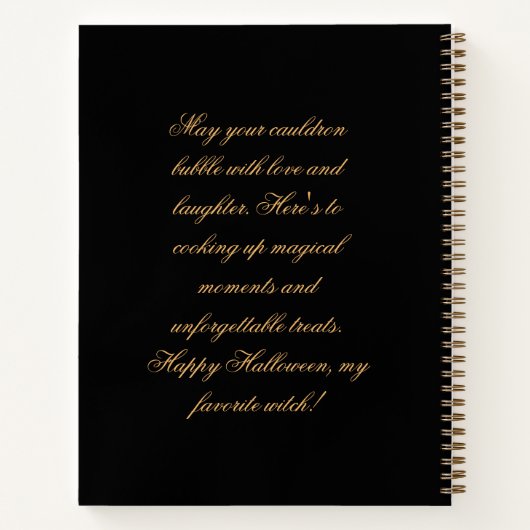 May your cauldron
bubble with love and
laughter. Here's to
cooking up magical
moments and
unforgettable treats.
Happy Halloween, my
favorite witch!